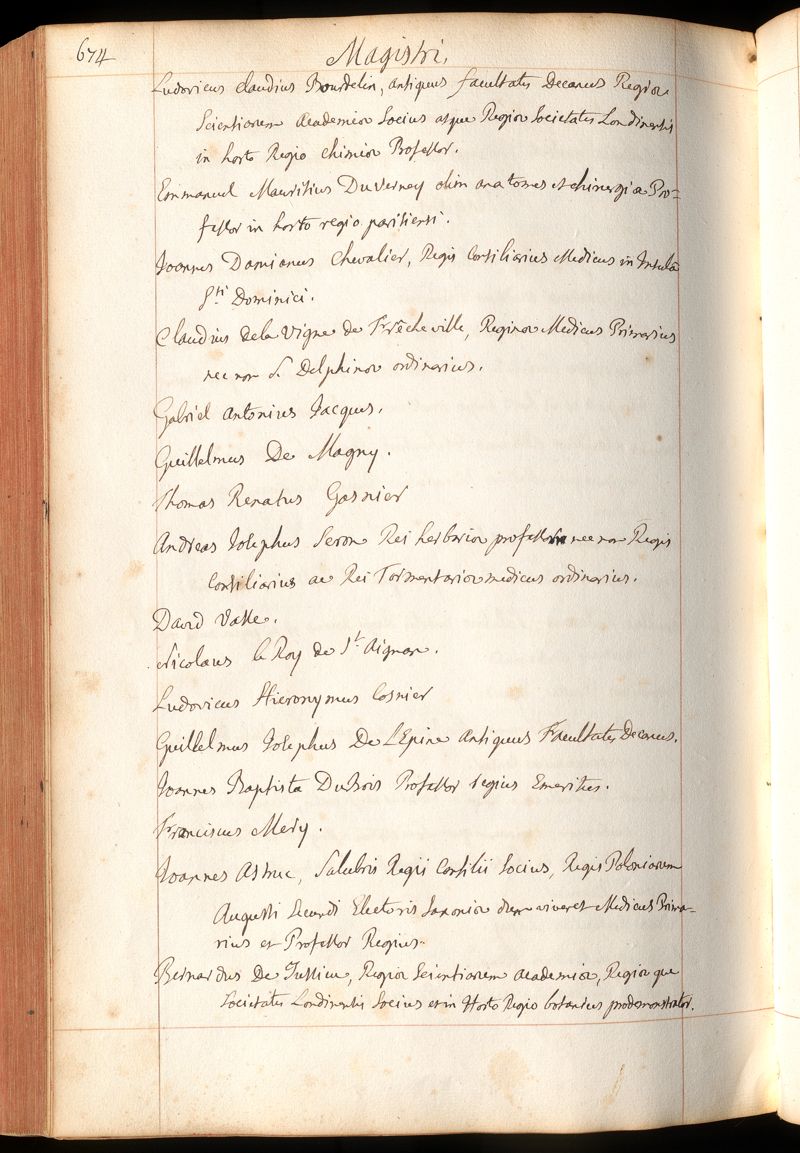 674
Magistri,
Ludovicus claudius Bourdelin, antiquus facultatis Decanus Regiæ
Scientiarum Academiæ Socius atque Regiæ Societatis Londinensis
in horto Regio chimiæ Professor.
Emmanuel Mauritius DuVerney olim anatomes et chirurgiæ Pro=
fessor in horto regio parisiensi.
Joannes Damianus Chevalier, Regis Consiliarius Medicus in Insulâ
Sti Dominici.
Claudius dela Vigne de Frêcheville, Reginæ Medicus Primarius
nec non S. Delphinæ ordinarius.
Gabriel Antonius Jacques.
Guillelmus De Magny.
Thomas Renatus Gasnier
Andreas Josephus Seron Rei herbariæ professor nec non Regis
Consiliarius ac Rei Tormentariæ medicus ordinarius.
David Vasse.
Nicolaus le Roy de St Aignan.
Ludovicus Hieronymus Cosnier
Guillelmus Josephus De L'Epine Antiquus Facultatis Decanus.
Joannes Baptista DuBois Professor regius Emeritus.
Franciscus Mery.
Joannes Astruc, Salubris Regii Consilii Socius, Regis Poloniarum
Augusti Secundi Electoris Saxoniæ dum viveret Medicus Prima-
rius et Professor Regius.
Bernardus De Jussieu, Regiæ Scientiarum academiæ, Regiæque
Societatis Londinensis Socius et in Horto Regio botanices prodemonstrator.